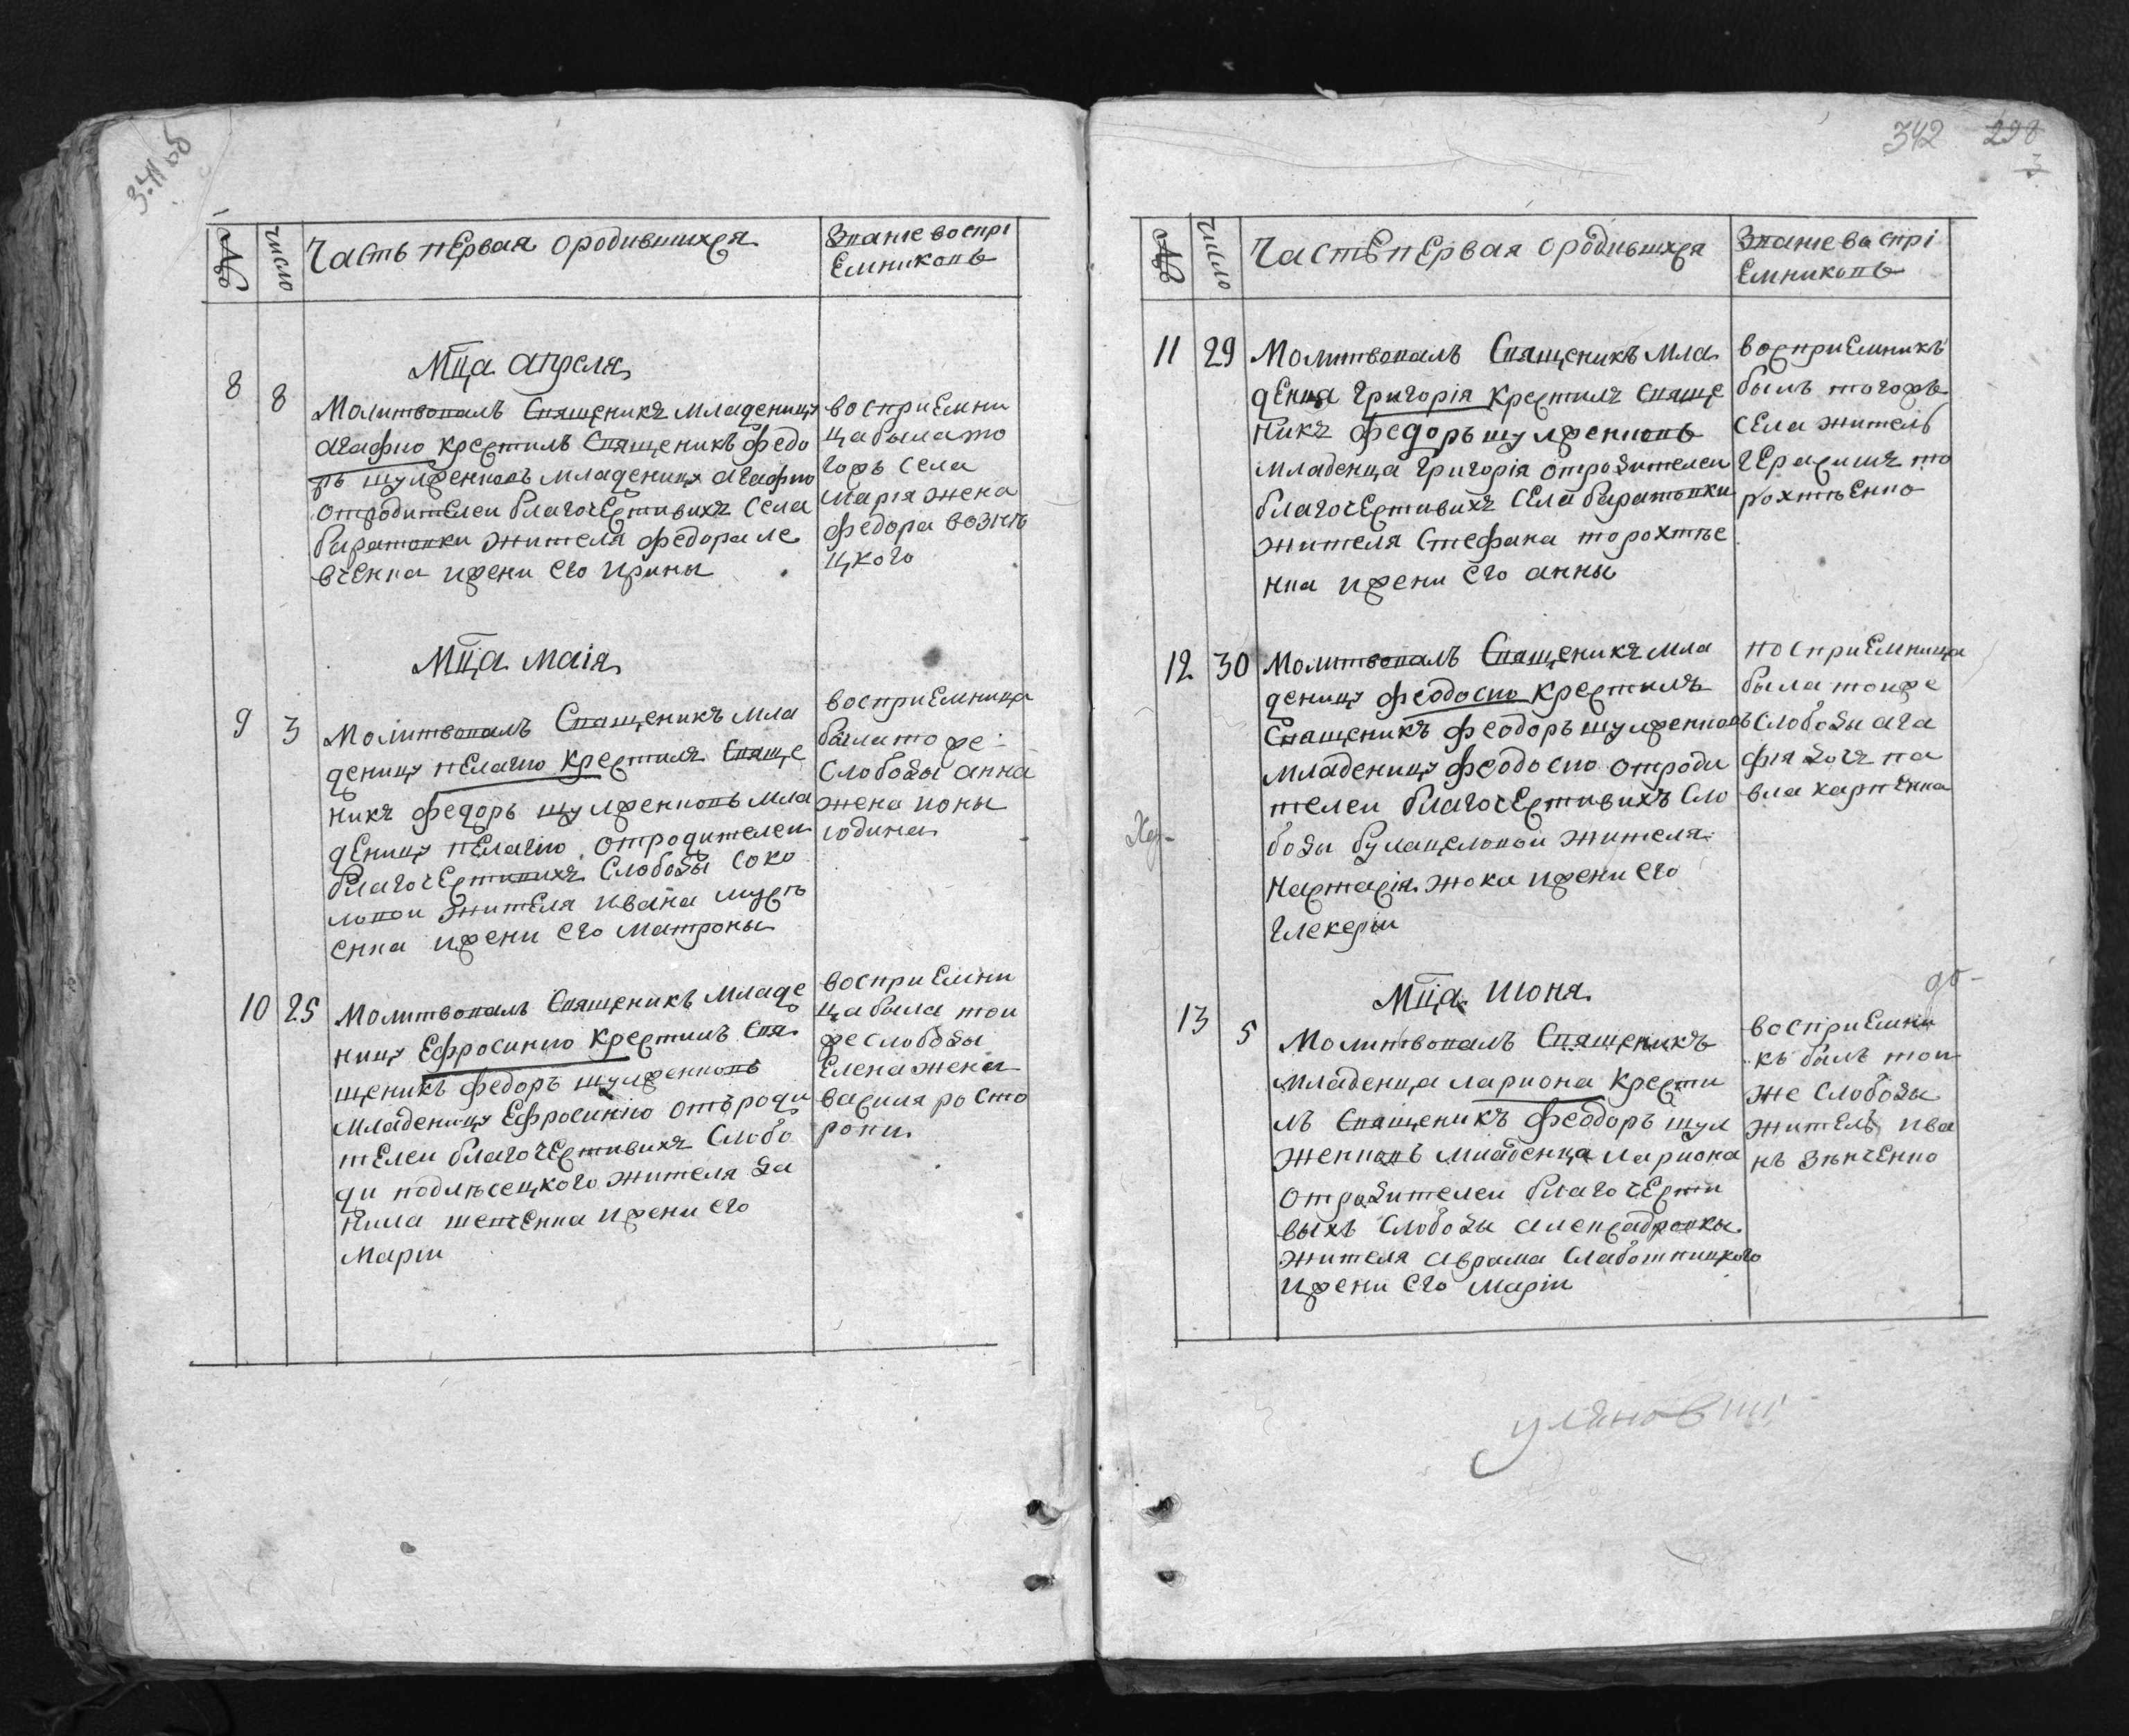 341 об
№
число
Часть первая ородившихся
Званіе воспрі
емниковъ
Мца апреля
8
8
Молитвовалъ Священикъ младеницу
агафию крестилъ Священикъ федо
ръ шулженковъ младеницу агафию
отродителеи благочестивихъ села
жителя федора ле
вченка ижени его ирины
восприемни
ца была то
гожъ села
Марiя жена
федора возни
цкого
Мца маія
9
3
Молитвовалъ Священикъ мла
деницу пелагию крестилъ Свяще
никъ федоръ шулженковъ мла
деницу пелагию отродителеи
благочестивихъ Слободы соко
ловои жителя ивана
енка ижени его матроны
восприемница
была тоже
Слободы анна
жена ионы
юдина
10
25
Молитвовалъ Священикъ младе
ницу Ефросинию крестилъ Свя
щеникъ федоръ шулженковъ
младеницу Ефросинію отъроди
телеи благочестивихъ Слобо
ди подлѣсецкого жителя да
нила шевченка ижени его
Маріи
восприемни
ца была тои
же слободы
Елена жена
василя росто
роки
342
298
3
№
число
Часть первая ородившихся
Званіе воспрі
емниковъ
11
29
Молитвовалъ Священикъ мла
денца григорія крестилъ Свяще
никъ федоръ шулженковъ
младенца григорія отродителеи
благочестивихъ села
жителя Стефана торохтѣе
нка ижени его анны
восприемникъ
былъ тогожъ
села житель
герасимъ то
рохтѣенко
12
30
Молитвовалъ Священикъ мла
деницу феодосию крестилъ
Священикъ феодоръ шулженковъ
младеницу феодосию отроди
телеи благочестивихъ сло
боды булацеловои жителя
жока ижени его
гликеріи
восприемница
была тоиже
Слободы ага
фия дочъ па
вла карпенка
Мца июня
до-
13
5
Молитвовалъ Священикъ
младенца лариона крести
лъ Священикъ феодоръ шул
женковъ младенца лариона
отродителеи благочести
выхъ слободы александровки
жителя аврама Слаботницкого
ижени его маріи
восприемни
къ былъ тои
же слободы
житель ива
нъ зѣнченко